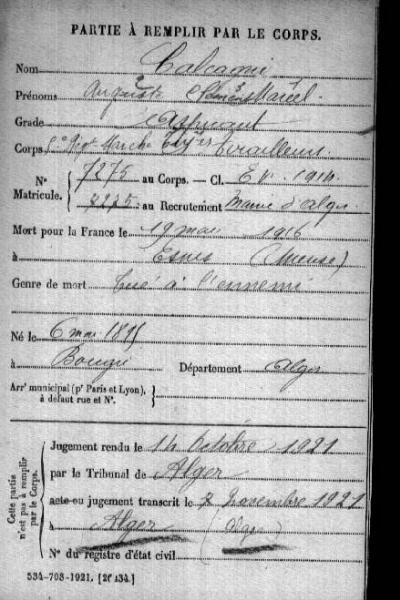 PARTIE À REMPLIR PAR LE CORPS.
Nom Calcagni
Prénoms Auguste Clément Marcel
Grade Aspirant
Corps Rgt Marche Tirailleurs
N° Matricule.
7275 au Corps. — Cl. E.V. 1914
2225 au Recrutement Mairie d'Alger
Mort pour la France le 19 mai 1916
à Esnes (Meuse)
Genre de mort Tué à l'ennemi
Né le 6 mai 1895
à Bougie Département Alger
Arrt municipal (pr Paris et Lyon), à défaut rue et N°.
Cette partie n'est pas à remplir par le Corps.
Jugement rendu le 14 Octobre 1921
par le Tribunal de Alger
acte ou jugement transcrit le 2 novembre 1921
à Alger (Alger)
N° du registre d'état civil
534-708-1921. [26434.]